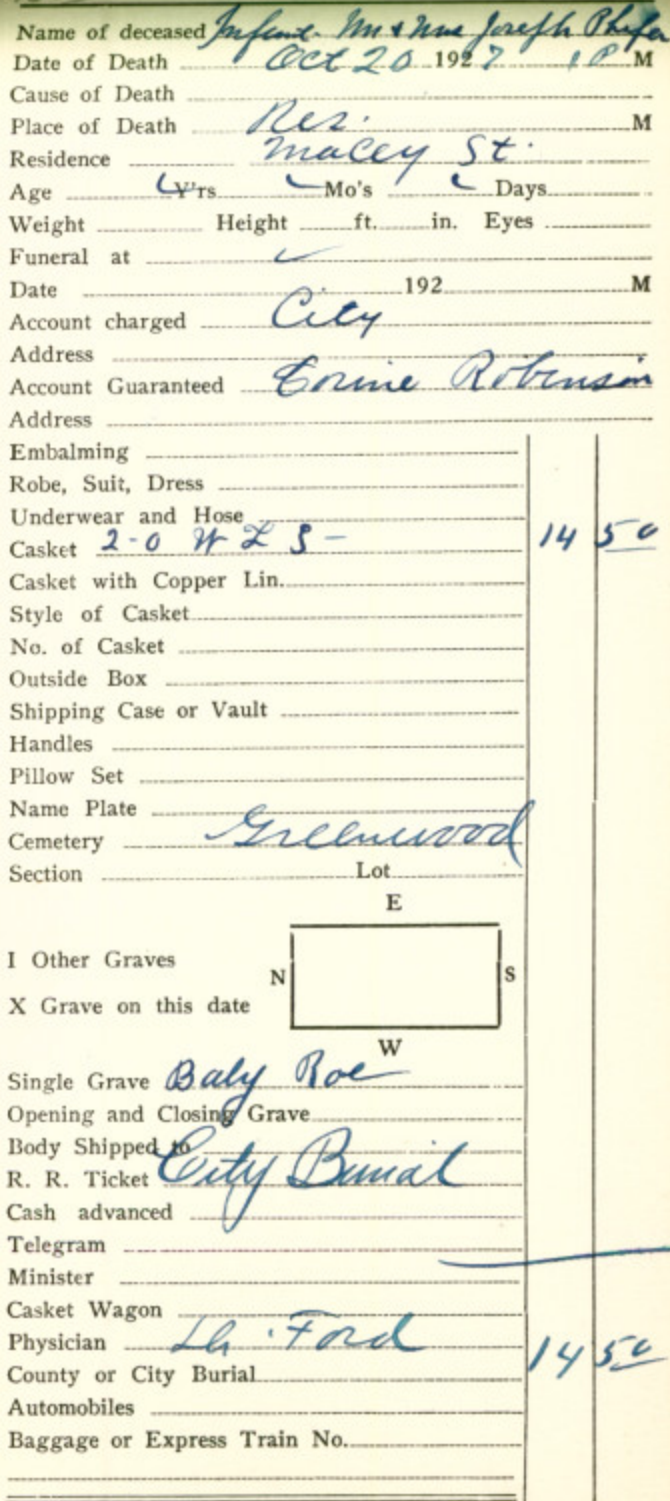 Name of deceased Infant Mr & Mrs Joseph Phifer
Date of Death Oct 20 1927 1 P M
Cause of Death
Place of Death Res. M
Residence Macey St.
Age Y'rs Mo's Days
Weight Height ft. in. Eyes
Funeral at
Date 192 M
Account charged City
Address
Account Guaranteed Corine Robinson
Address
Embalming
Robe, Suit, Dress
Underwear and Hose
Casket 2-0 W L S - 14 50
Casket with Copper Lin.
Style of Casket
No. of Casket
Outside Box
Shipping Case or Vault
Handles
Pillow Set
Name Plate
Cemetery Greenwood
Section Lot
E
I Other Graves
N S
X Grave on this date
W
Single Grave Baby Roe
Opening and Closing Grave
Body Shipped to
R. R. Ticket City Burial
Cash advanced
Telegram
Minister
Casket Wagon
Physician Dr. Ford 14 50
County or City Burial
Automobiles
Baggage or Express Train No.